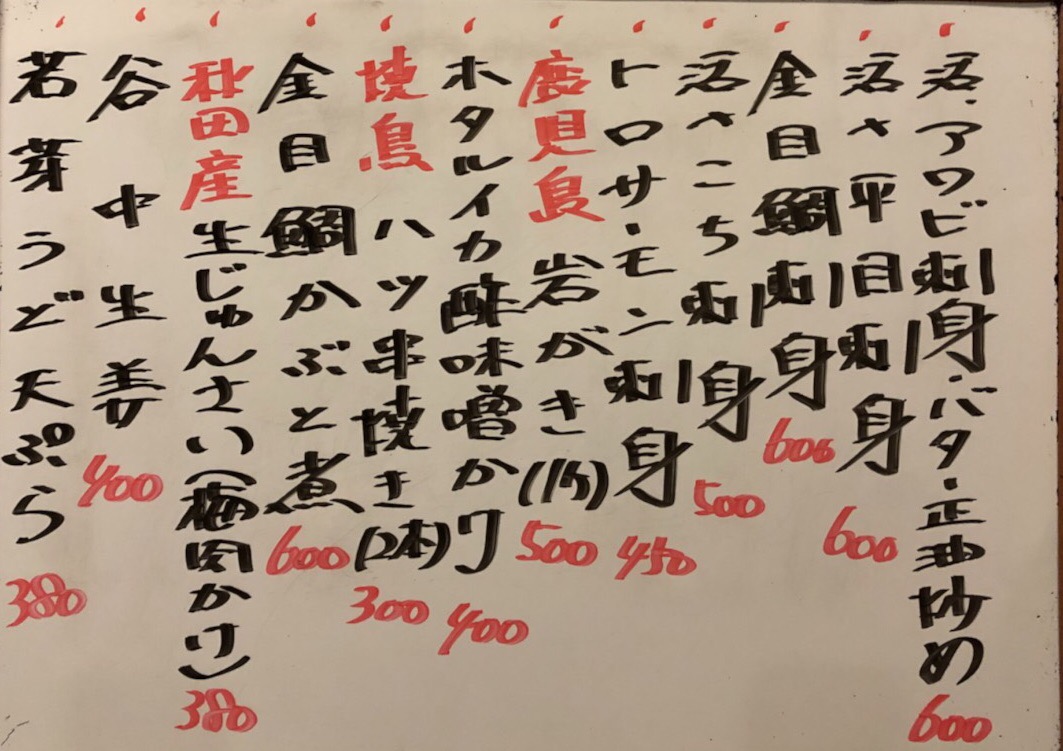 活、アワビ刺身・バター正油炒め 600
活〆平目刺身 600
金目鯛刺身 600
活〆こち刺身 500
トロサーモン刺身 450
鹿児島 岩がき(1ケ) 500
ホタルイカ酢味噌かけ 400
焼鳥 ハツ串焼き(2本) 300
金目鯛かぶと煮 600
秋田産 生じゅんさい(梅肉かけ) 380
谷中生姜 400
若芽うど天ぷら 380